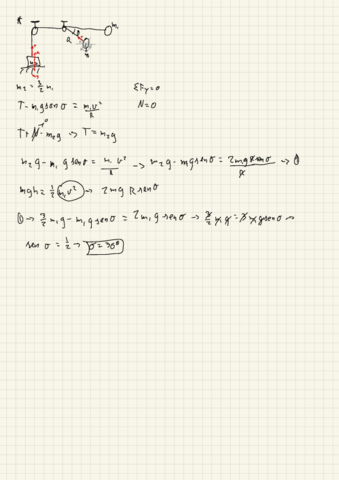 *
m₁
θ
R
m₂ = 3/2 m₁
ΣFy = 0
T - m₁g sen σ = m₁v²/R
N = 0
T + N⁰ - m₂g → T = m₂g
m₂g - m₁ g sen σ = m₁ v²/R → m₂g - mg sen σ = 2mgR sen σ/R → ①
mgh = 1/2 m₁v² → 2mg R sen σ
① → 3/2 m₁g - m₁g sen σ = 2m₁g sen σ → 3/2 m₁g = 3m₁g sen σ →
sen σ = 1/2 → σ = 30°